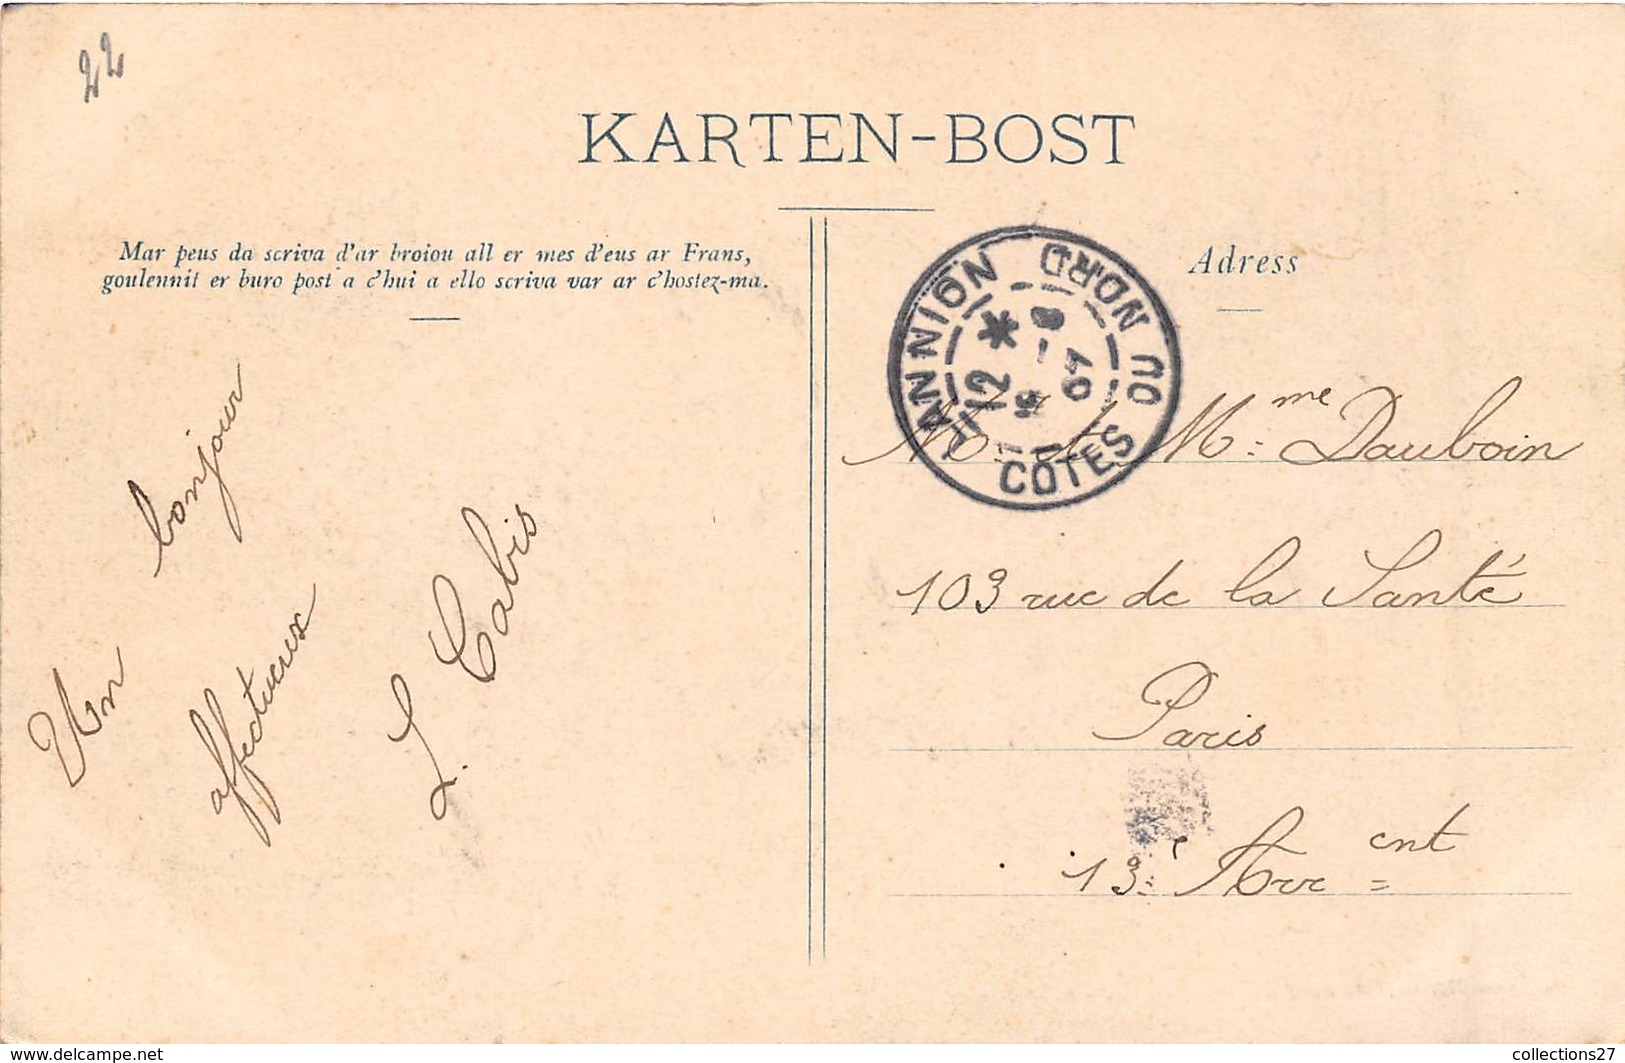 22
KARTEN-BOST
Mar peus da scriva d'ar broiou all er mes d'eus ar Frans,
goulennit er buro post a c'hui a ello scriva var ar c'hostez-ma.
Adress
LANNION
COTES DU NORD
Un bonjour
affectueux
L. Cabis
Mr. et Mme Dauboin
103 rue de la Santé
Paris
13e Arrcnt
www.delcampe.net
collections27